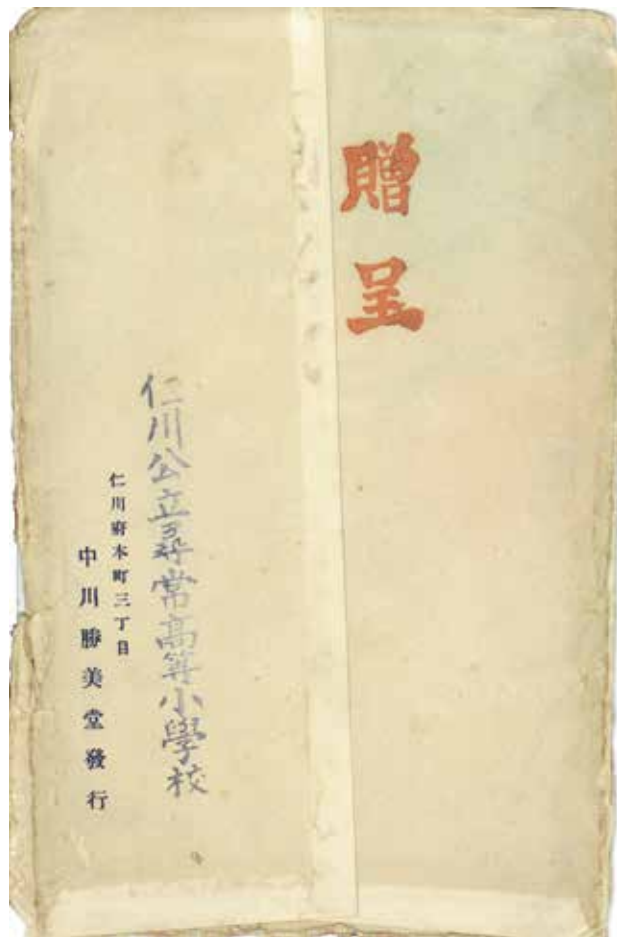 贈呈
仁川公立尋常高等小學校
仁川府本町三丁目
中川勝美堂發行